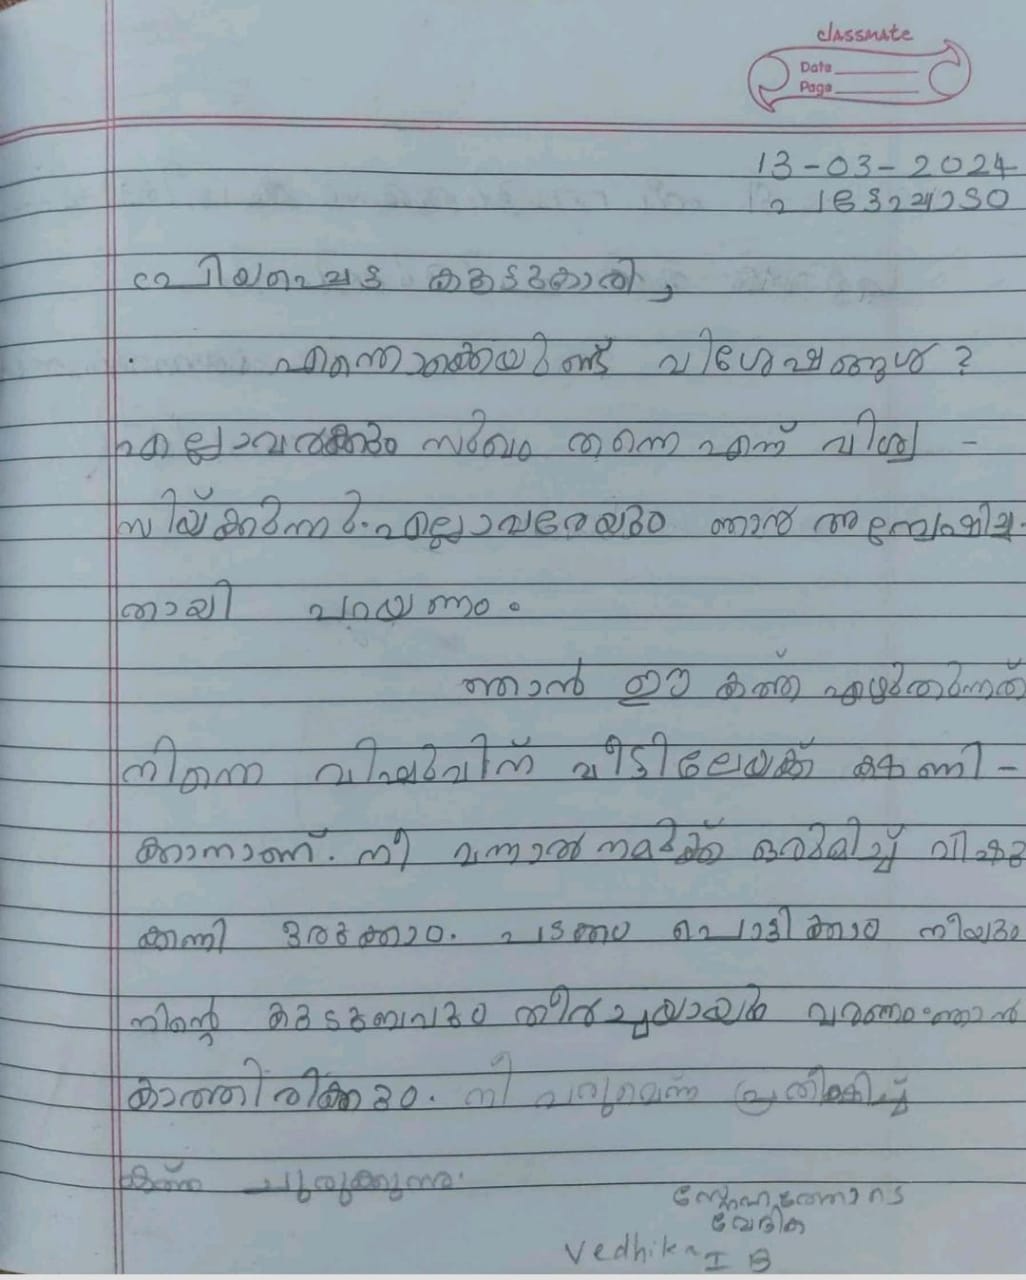 classmate
Date
Page
13-03-2024
പ്രിയപ്പെട്ട കൂട്ടുകാരി,
എന്തൊക്കെയുണ്ട് വിശേഷങ്ങൾ?
എല്ലാവർക്കും സുഖം തന്നെ എന്ന് വിശ്വ -
സിയ്ക്കുന്നു. എല്ലാവരേയും ഞാൻ അന്വേഷിച്ച
തായി പറയണം.
ഞാൻ ഈ കത്ത് എഴുതുന്നത്
നിന്നെ വിഷുവിന് വീട്ടിലേയ്ക്ക് ക്ഷണി -
ക്കാനാണ്. നീ വന്നാൽ നമുക്ക് ഒരുമിച്ച് വിഷു
ക്കണി ഒരുക്കാം. പടക്കം പൊട്ടിക്കാം നീയും
നിന്റെ കുടുംബവും തീർച്ചയായും വരണം. ഞാൻ
കാത്തിരിക്കും. നീ വരുമെന്ന് പ്രതീക്ഷിച്ച്
കത്ത് ചുരുക്കുന്നു.
സ്നേഹത്തോടെ
വേദിക
Vedhika
I B